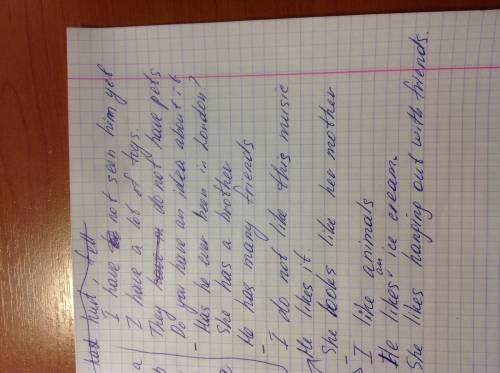 I have not seen him yet
a I have a lot of toys.
They do not have pets
Do you have an idea about it
- Has he ever been in London?
She has a brother
He has many friends
- I do not like this music
He likes it.
She looks like her mother
- I like animals
He likes an ice cream.
She likes hanging out with friends.